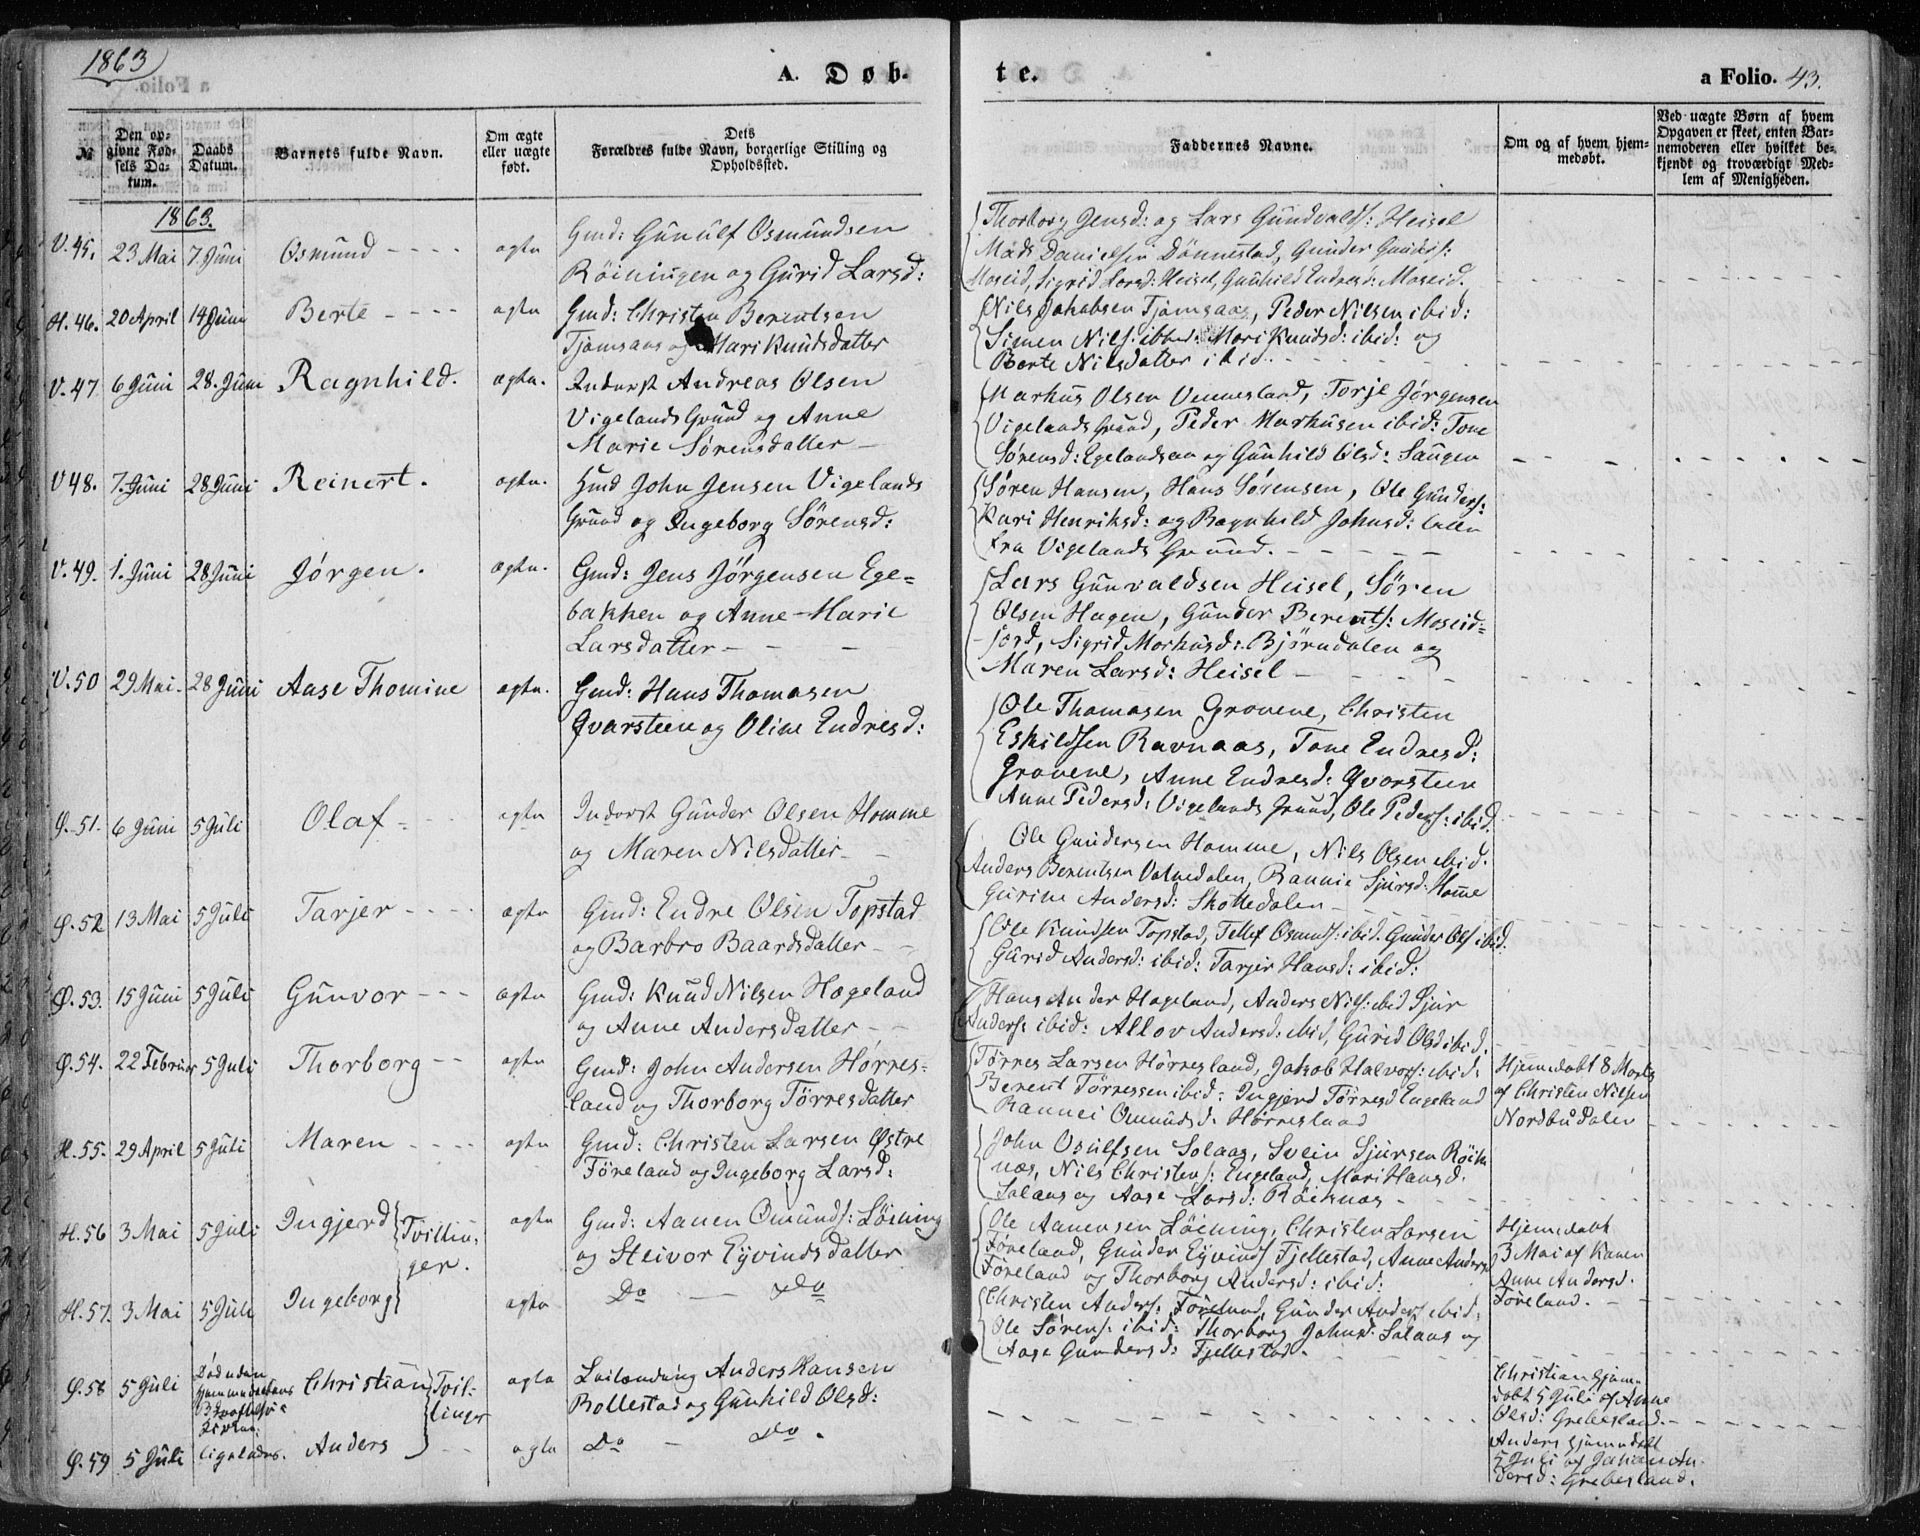 1863
A. Døb-
te.
a Folio. 43.
№
Den op-
givne Fød-
sels Da-
tum.
Daabs
Datum.
Barnets fulde Navn.
Om ægte
eller uægte
født.
Dets
Forældres fulde Navn, borgerlige Stilling og
Opholdssted.
Faddernes Navne.
Om og af hvem hjem-
medøbt.
Ved uægte Børn af hvem
Opgaven er skeet, enten Bar-
nemoderen eller hvilket be-
kjendt og troværdigt Med-
lem af Menigheden.
1863.
V. 45. 23 Mai 7 Juni Osmund ægte Gmd: Gunulf Osmundsen
Röiningen og Gurid Larsd:
Thorborg Jensd: og Lars Gundvalds: Heisel
Mads Danielsen Dønnestad, Gunder Gunders:
Moseid, Sigrid Larsd: Heisel, Gunhild Endresd: Moseid.
H. 46. 20 April 14 Juni Berte ægte Gmd: Christen Berentsen
Tjomsaas og Mari Knudsdatter
Nils Jakobsen Tjomsaas, Peder Nilsen ibid:
Simen Nils: ibid: Mari Knudsd: ibid: og
Berte Nilsdatter ibid.
V. 47 6 Juni 28. Juni Ragnhild. ægte. Inderst Andreas Olsen
Vigelands Grund og Anne
Marie Sørensdatter
Markus Olsen Vennesland, Torje Jørgensen
Vigelands Grund, Peder Markusen ibid: Tone
Sørensd: Egelandsaa og Gunhild Olsd: Saugen
V 48. 7. Juni 28 Juni Reinert. ægte. Hmd John Jensen Vigelands
Grund og Ingeborg Sørensd:
Søren Hansen, Hans Sørensen, Ole Gunders:
Kari Henriksd: og Ragnhild Johnsd: alle
fra Vigelands Grund.
V. 49. 1. Juni 28 Juni Jørgen. ægte. Gmd: Jens Jørgensen Ege-
bakken og Anne-Marie
Larsdatter
Lars Gunvaldsen Heisel, Søren
Olsen Hagen, Gunder Berents: Moseid-
jord, Sigrid Markusd: Bjørndalen og
Maren Larsd: Heisel
V. 50 29 Mai. 28 Juni Aase Thomine ægte. Gmd: Hans Thomasen
Qvarsteen og Oline Endresd:
Ole Thomasen Grovene, Christen
Eskildsen Ravnaas, Tone Endresd:
Grovene, Anne Endresd: Qvarsteen
Anne Pedersd: Vigelands Grund, Ole Peders: ibid.
Ø. 51. 6 Juni 5 Juli Olaf ægte Inderst Gunder Olsen Homme
og Maren Nilsdatter
Ole Gundersen Homme, Nils Olsen ibid.
Anders Berentsen Vatnedalen, Rannie Sjursd: Homme
Gurine Andersd: Skottedalen
Ø. 52 13 Mai 5 Juli Tarjer ægte Gmd: Endre Olsen Topstad
og Barbro Baardsdatter
Ole Knudsen Topstad, Tellef Osmunds: ibid. Gunder Ols: ibid.
Gurid Andersd: ibid: Tarjer Hansd: ibid:
Ø. 53. 15 Juni 5 Juli Gunvor ægte Gmd: Knud Nilsen Hægeland
og Anne Andersdatter
Hans Ander Hægeland, Anders Nils: ibid Sjur
Anders: ibid: Allov Andersd: ibid, Gurid Olsd ibid.
Ø. 54. 22 Februar 5 Juli Thorborg ægte Gmd: John Andersen Hørres-
land og Thorborg Tørresdatter
Tørres Larsen Hørresland, Jakob Halvors: ibid:
Berent Tørressen ibid: Ingjerd Tørresd Engeland
Rannei Omundsd: Hørresland
Hjemmedøbt 8 Marts
af Christen Nilsen
Nordbudalen
H. 55. 29 April 5 Juli Maren ægte Gmd: Christen Larsen Østre
Føreland og Ingeborg Larsd:
John Osulfsen Solaas, Svein Sjursen Røik-
næs, Nils Christens: Engeland, Mari Hansd.
Solaas og Aase Larsd: Röiknæs
H. 56 3 Mai 5 Juli Ingjerd Tvillin-
ger. ægte Gmd: Aanen Omunds: Løining
og Steivor Eyvindsdatter
Ole Aanensen Løining, Christen Larsen
Føreland, Gunder Eyvinds Fjellestad, Anne Andersd
Føreland og Thorborg Andersd: ibid:
Hjemmedøbt
3 Mai af Konen
Anne Andersd.
Føreland.
H. 57. 3 Mai 5 Juli Ingeborg ægte Do Do
Christen Anders: Føreland, Gunder Anders ibid:
Ole Sørens: ibid: Thorborg Johnsd. Solaas og
Aase Gundersd: Fjellestad.
Ø. 58 5 Juli Død uden
Hjemmedaabens
Bekræftelse i
Kirken: Christian Tvil-
linger ægte Leilænding Anders Hansen
Bollestad og Gunhild Olsd:
Christian hjem-
døbt 5 Juli af Anne
Olsd: Grebesland.
Ø. 59 5 Juli ligeledes. Anders ægte Do Do.
Anders hjemdøbt
5 Juli af An-
dersd: Grebesland.